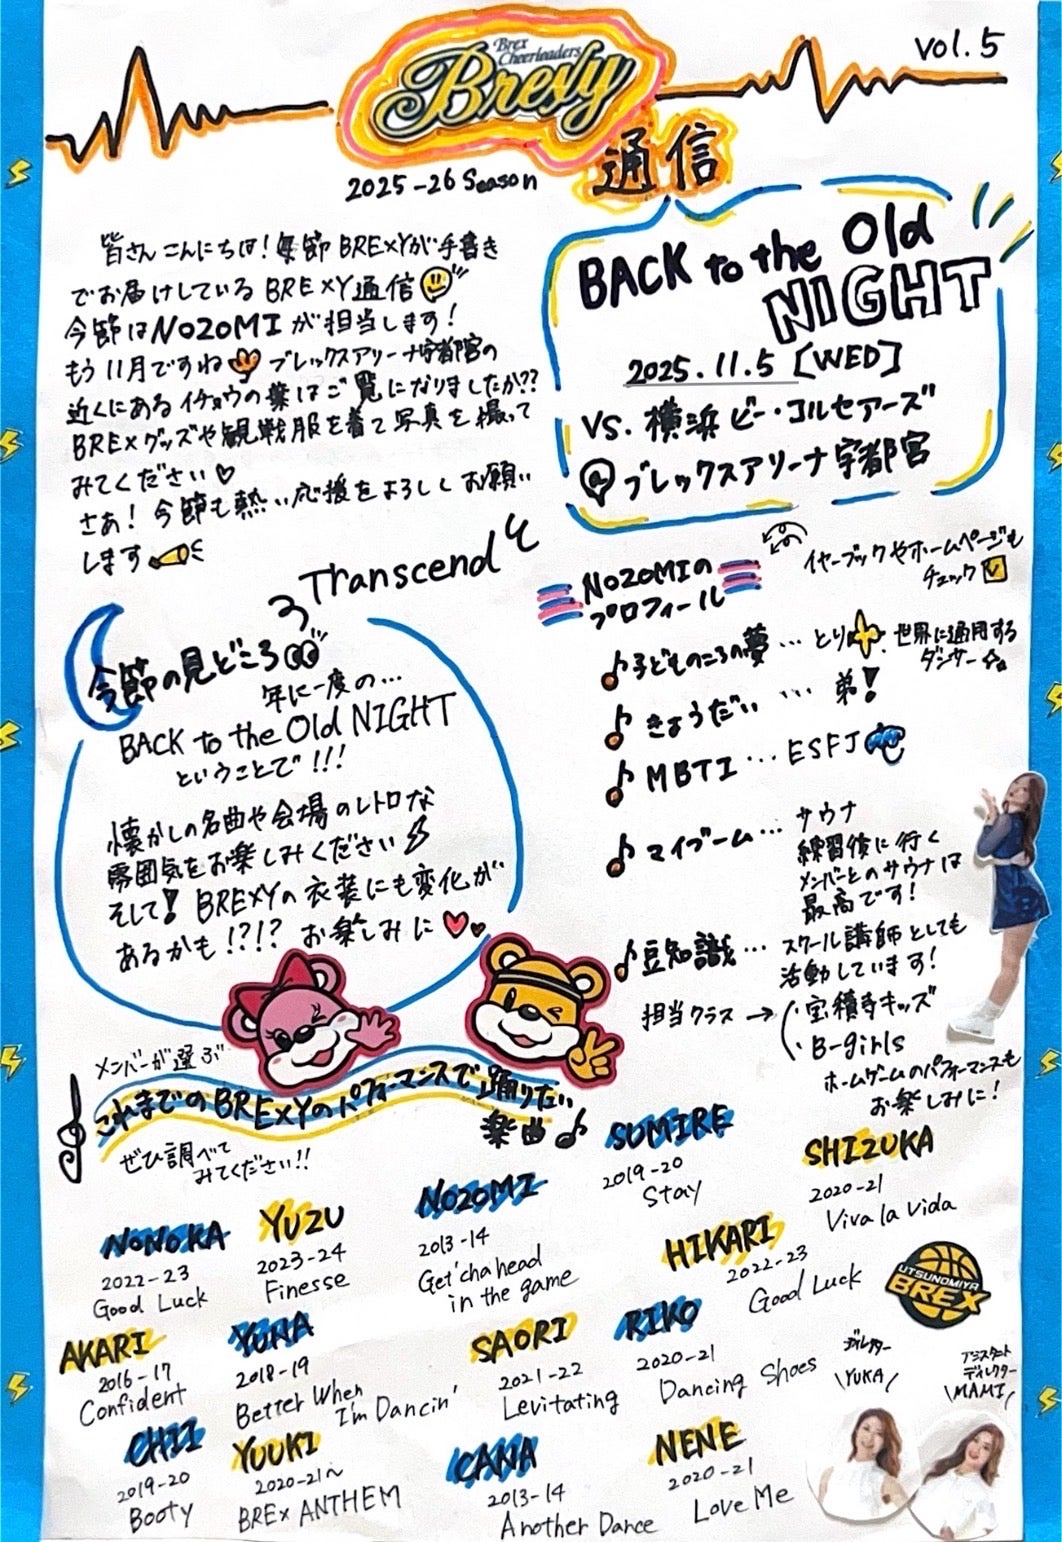 vol.5
Brex
Cheerleaders
Brexy
通信
2025-26 Season
皆さんこんにちは！毎節BREXYが手書き
でお届けしているBREXY通信
今節はNOZOMIが担当します！
もう11月ですね ブレックスアリーナ宇都宮の
近くにあるイチョウの葉はご覧になりましたか??
BREXグッズや観戦服を着て写真を撮って
みてください♡
さあ！今節も熱い応援をよろしくお願い
します
BACK to the Old
NIGHT
2025.11.5 [WED]
VS. 横浜ビー・コルセアーズ
@ブレックスアリーナ宇都宮
Transcend
今節の見どころ
年に一度の...
BACK to the Old NIGHT
ということで!!!
懐かしの名曲や会場のレトロな
雰囲気をお楽しみください
そして！BREXYの衣装にも変化が
あるかも!?!? お楽しみに
NOZOMIの
プロフィール
イヤーブックやホームページも
チェック
♪子どものころの夢... とり 世界に通用する
ダンサー
♪きょうだい ... 弟！
♪MBTI... ESFJ
♪マイブーム... サウナ
練習後に行く
メンバーとのサウナは
最高です！
♪豆知識... スクール講師としても
活動しています！
担当クラス→ ・宝積寺キッズ
・B-girls
ホームゲームのパフォーマンスも
お楽しみに！
メンバーが選ぶ
これまでのBREXYのパフォーマンスで踊りたい
楽曲♪
ぜひ調べて
みてください!!
NONOKA
2022-23
Good Luck
YUZU
2023-24
Finesse
NOZOMI
2013-14
Get'cha head
in the game
SUMIRE
2019-20
Stay
SHIZUKA
2020-21
Viva la vida
HIKARI
2022-23
Good Luck
UTSUNOMIYA
BREX
AKARI
2016-17
Confident
YUNA
2018-19
Better When
I'm Dancin'
SAORI
2021-22
Levitating
RIKO
2020-21
Dancing Shoes
ディレクター
\YUKA/
アシスタント
ディレクター
\MAMI/
CHII
2019-20
Booty
YUUKI
2020-21～
BREX ANTHEM
CANA
2013-14
Another Dance
NENE
2020-21
Love Me